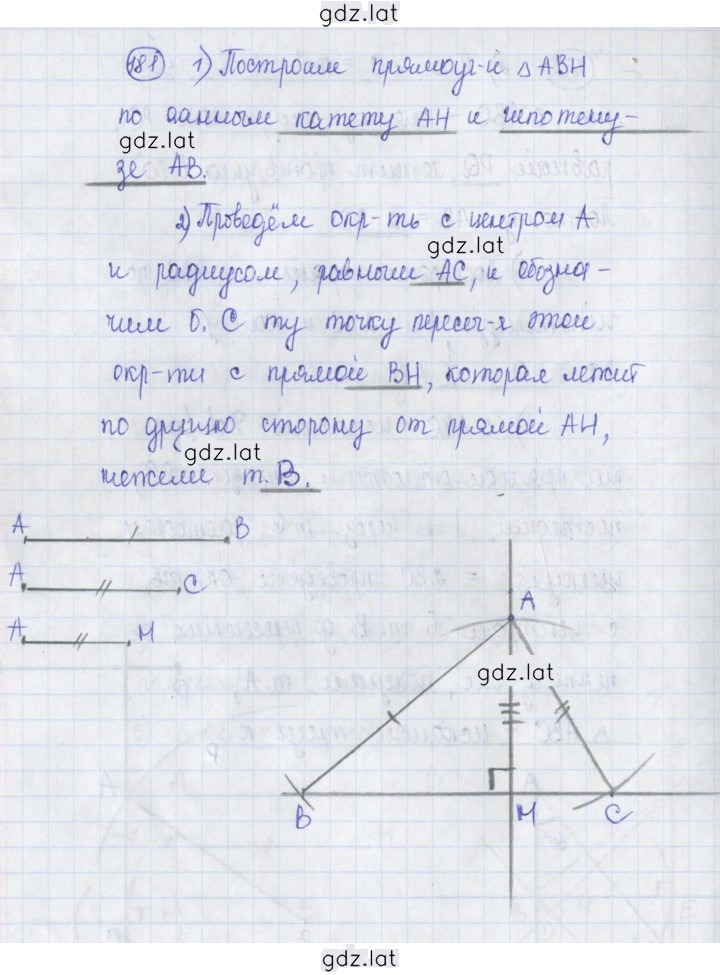 gdz.lat
481 1) Построим прямоуг-й △ ABH
по данным катету AH и гипотену-
gdz.lat
зе AB.
2) Проведём окр-ть с центром A
gdz.lat
и радиусом, равным AC, и обозна-
чим б. C ту точку пересеч-я этой
окр-ти с прямой BH, которая лежит
по другую сторону от прямой AH,
gdz.lat
нежели т. B.
A B
A C
A H
A
gdz.lat
B H C
gdz.lat